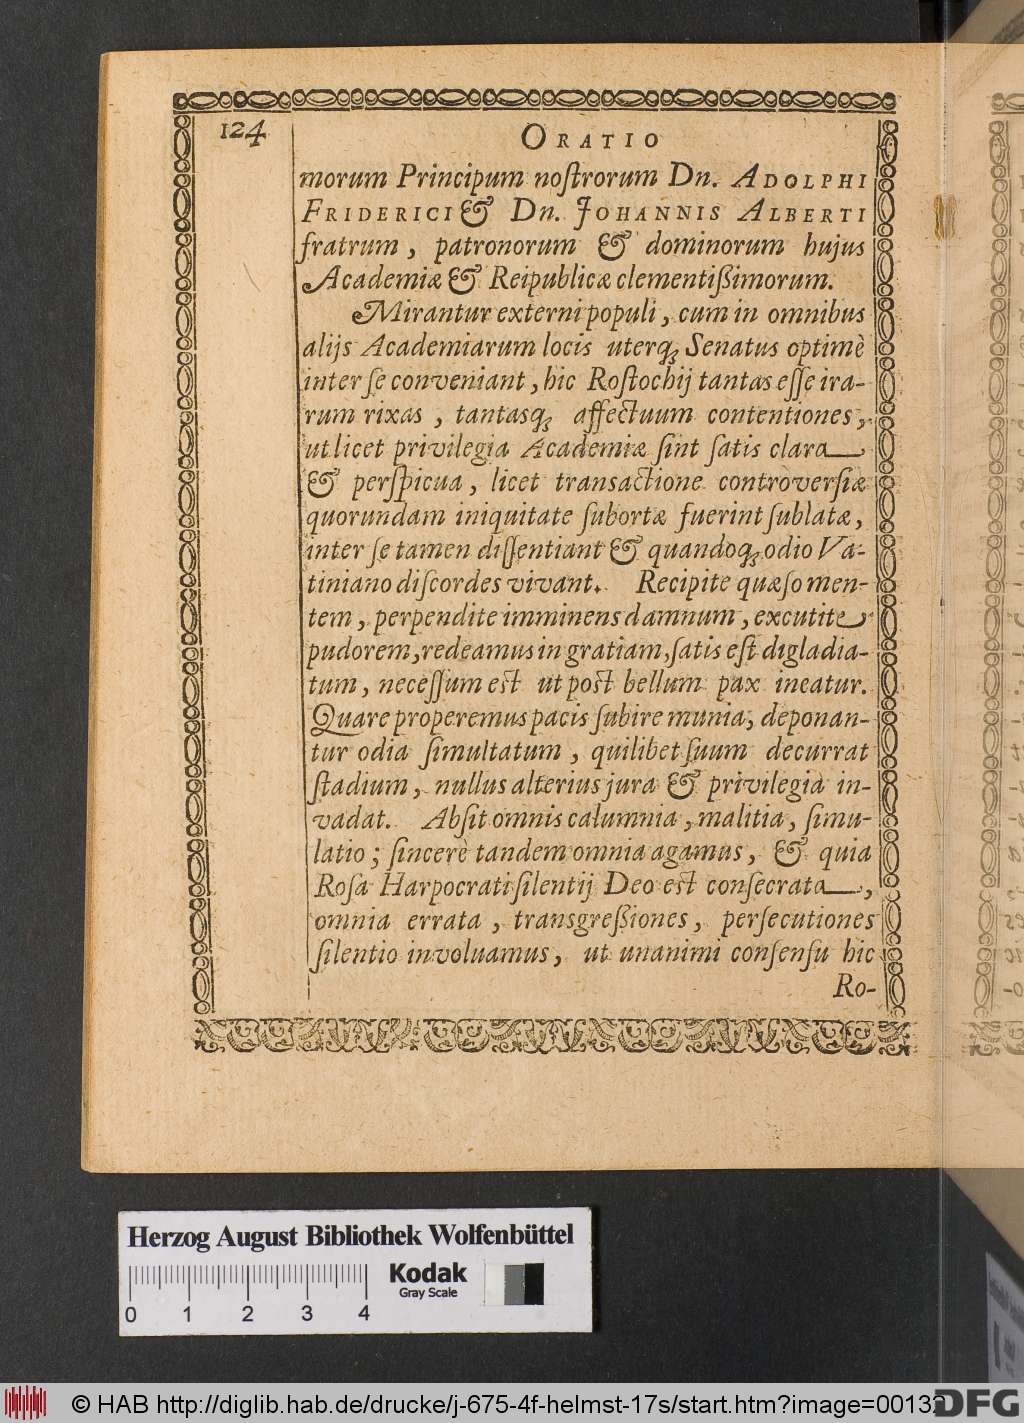 124
ORATIO
morum Principum noſtrorum Dn. ADOLPHI
FRIDERICI & Dn. JOHANNIS ALBERTI
fratrum, patronorum & dominorum hujus
Academiæ & Reipublicæ clementißimorum.
Mirantur externi populi, cum in omnibus
alijs Academiarum locis uterq́ꝫ Senatus optimè
inter ſe conveniant, hic Roſtochij tantas eſſe ira-
rum rixas, tantasq́ꝫ affectuum contentiones,
ut licet privilegia Academiæ ſint ſatis clara
& perſpicua, licet transactione controverſiæ
quorundam iniquitate ſubortæ fuerint ſublatæ,
inter ſe tamen diſſentiant & quandoq́ꝫ odio Va-
tiniano diſcordes vivant. Recipite quæſo men-
tem, perpendite imminens damnum, excutite
pudorem, redeamus in gratiam, ſatis eſt digladia-
tum, neceſſum est ut post bellum pax ineatur.
Quare properemus pacis ſubire munia, deponan-
tur odia ſimultatum, quilibet ſuum decurrat
ſtadium, nullus alterius jura & privilegia in-
vadat. Abſit omnis calumnia, malitia, ſimu-
latio; ſincerè tandem omnia agamus, & quia
Roſa Harpocrati ſilentij Deo est conſecrata,
omnia errata, transgreßiones, perſecutiones
ſilentio involuamus, ut unanimi conſenſu hic
Ro-
Herzog August Bibliothek Wolfenbüttel
Kodak
Gray Scale
0 1 2 3 4
© HAB http://diglib.hab.de/drucke/j-675-4f-helmst-17s/start.htm?image=00132
DFG